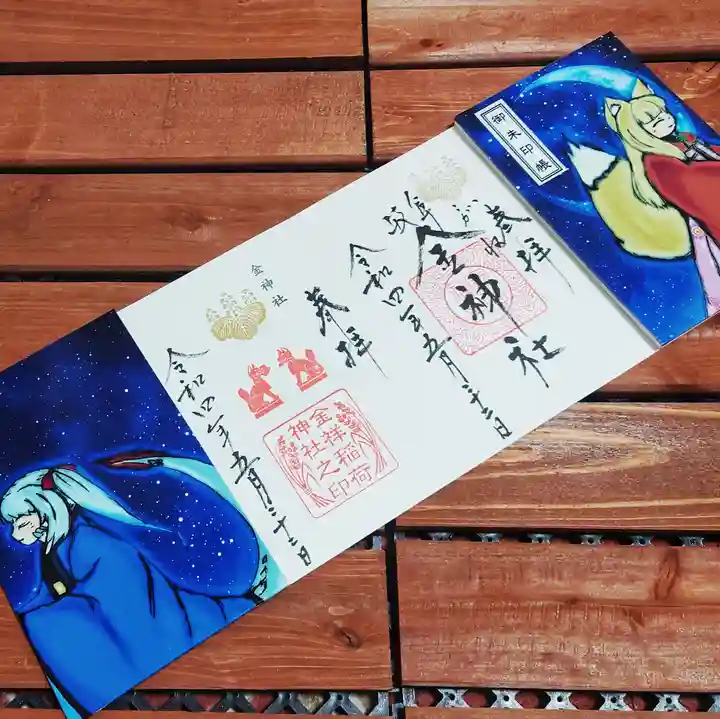 御朱印帳
奉拝
岐阜
金神社
令和四年五月二十二日
奉拝
金祥稲荷
神社之印
金神社
令和四年五月二十二日